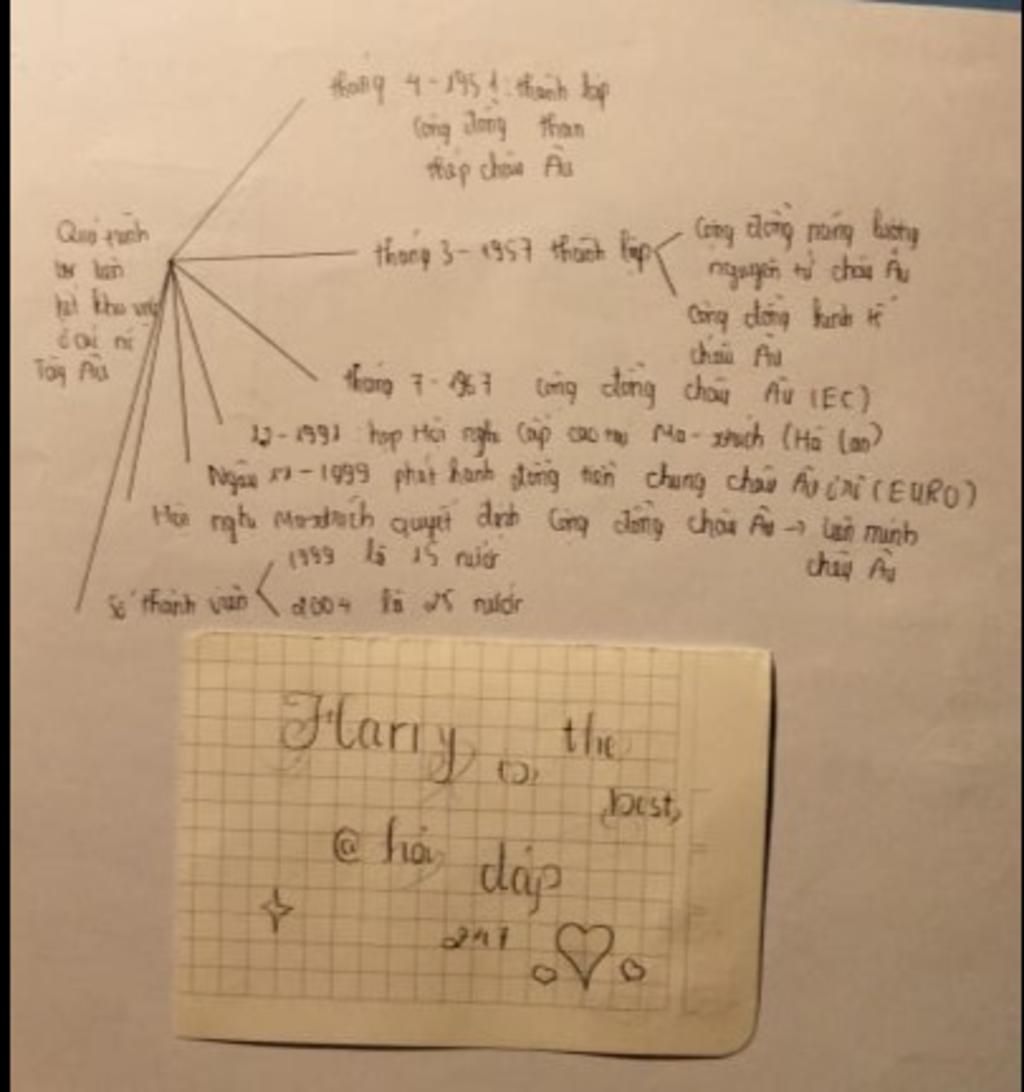 tháng 4-1951: thành lập
Cộng đồng than
thép châu Âu
Quá trình
liên
kết khu vực
Tây Âu
tháng 3-1957 thành lập
Cộng đồng năng lượng
nguyên tử châu Âu
Cộng đồng kinh tế
châu Âu
tháng 7-1967 Cộng đồng châu Âu (EC)
12-1991 họp Hội nghị Cấp cao tại Ma-xtrích (Hà Lan)
Ngày 1-1-1999 phát hành đồng tiền chung châu Âu (EURO)
Hội nghị Ma-xtrích quyết định Cộng đồng châu Âu → Liên minh
châu Âu
1999 là 15 nước
Số thành viên
2004 là 25 nước
Harry the
best
@ hỏi đáp
247